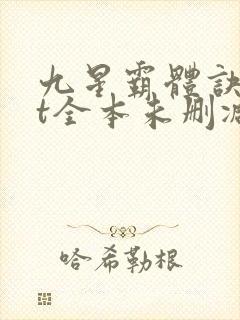 九星霸體訣
t全本未删减
哈希勒根